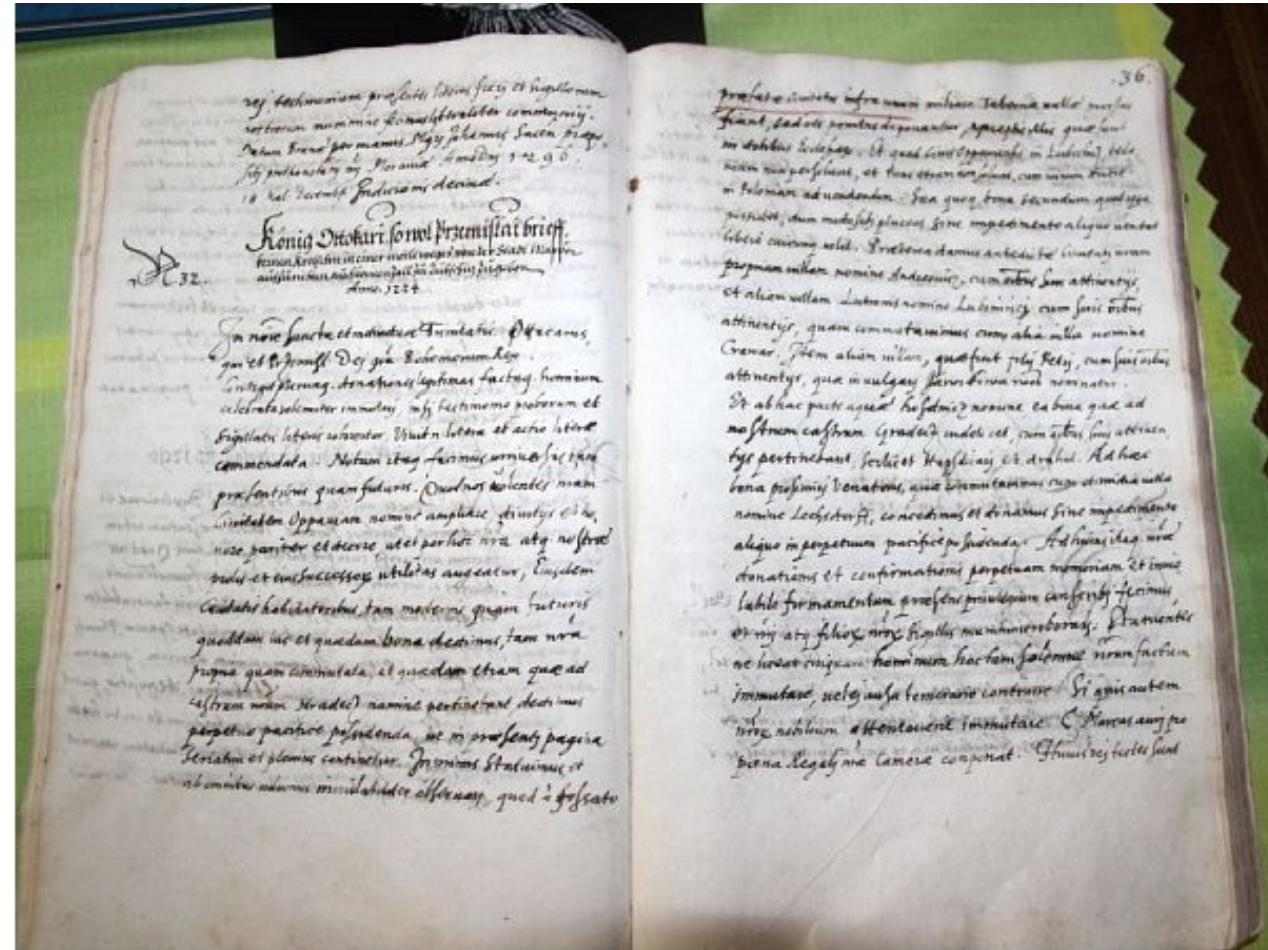 rej testimonium præsentes literas fieri et sigillorum
nostrorum munimine fecimus liberaliter communiri.
Datum Brunæ per manus Mgrj Johannis Sacen præpo-
sitj prothonotarij nrj Moraviæ A° MoDnj 1296.
18 Kal Decemb: Indictionis decimæ.
König Ottokari so wol Przemislai brieff.
ternen Kreschm in einer meile weges von der Stadt
Anno. 1224.
N 32.
In noīe sanctæ et individuæ Trinitatis Ottacarus,
qui et Præmisl Dej grā Bohemorum Rex.
donationes legitimas factaq hominum
celebrata solemniter testimonio proborum et
sigillatis literis Vivit n̄ litera et actio literæ
commendata. Notum itaq facimus universis tam
præsentibus quam futuris. Quod nos volentes nram
Civitatem Oppaviam nomine ampliare, divitijs et ho,
nore pariter et decore, ut et per hoc nrā atq nostræ
prolis et successorꝝ utilitas augeatur, Eiusdem
Civitatis habitatoribus, tam modernis quam futuris
quoddam ius et quædam bona dedimus, tam nrā
propria quam commutata, et quædam etiam quæ ad
castrum nrum Hradecz nomine pertinebant dedimus
perpetuo pacifice possidenda, ut in præsentj pagina
seriatim et plenius continetur. Inprimis Statuimus et
ab omnibus volumus inviolabiliter observarj, quod à fossato
36.
præfatæ Civitatis infra unum miliare Taberna nulla prorsus
fiant, sed oēs penitus deponantur, exceptis illis quæ sunt
in dotibus Ecclesiarꝝ. Et quod Cives Oppavienses in Lubschicz telo-
neum non persolvant, et tunc etiam non solvant, cum vinum ducunt
in Poloniam ad vendendum. Sua quoq bona secundum quod ipse
possidet, dum modo sibj placeat, sine impedimento aliquo vendat
liberè cuicunq volet. Præterea damus antedictæ Civitatj nram
propriam villam nomine cum oībus suis attinentijs,
et aliam villam nomine cum suis oībus
attinentijs, quam commutavimus cum alia villa nomine
Crevar. Item aliam villam, quæ fuit filij Petrj, cum suis oībus
attinentijs, quæ in vulgarj nominatur.
Et ab hac parte aquæ nomine ea bona quæ ad
nostrum castrum Gradecz cum oībus suis attinen,
tijs pertinebant, scilicet et Ad hæc
bona proximis Venatoris, quæ commutavimus cum dimidia villa
nomine Lechsdorff, concedimus et donamus sine impedimento
aliquo in perpetuum pacifice possidenda. Ad huius itaq nræ
donationis et confirmationis perpetuam memoriam et invio
labile firmamentum præsens privilegium conscribj fecimus,
et nrj atq filiorꝝ nrorꝝ sigillis munimine roborarj. Statuentes
ne liceat cuiquam hominum hoc tam solemne nrum factum
immutare, vel ej ausu temerario contraire. Si quis autem
nrorꝝ nobilium attentaverit immutare. C Marcas aurj pro
pœna Regalj nræ Cameræ componat. Huius rej testes sunt